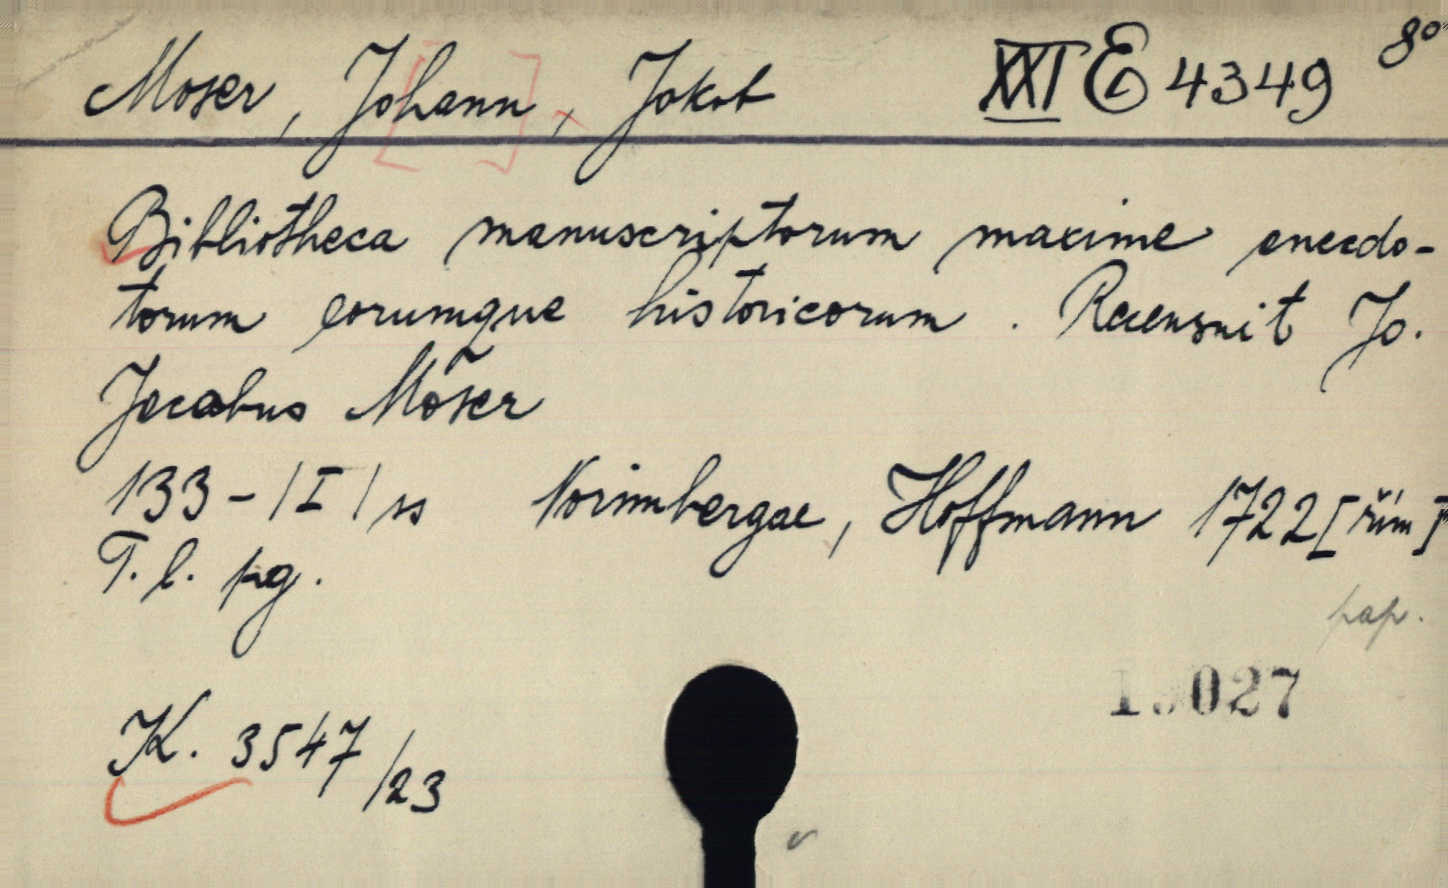 Moser, Johann, Jakob XXI E 4349 8°
Bibliotheca manuscriptorum maxime anecdo-
torum eorumque historicorum. Recensuit Jo.
Jacobus Moser
133-/I/ss Norimbergae, Hoffmann 1722 [řím]
T. l. pg.
pap.
027
K. 3547/23